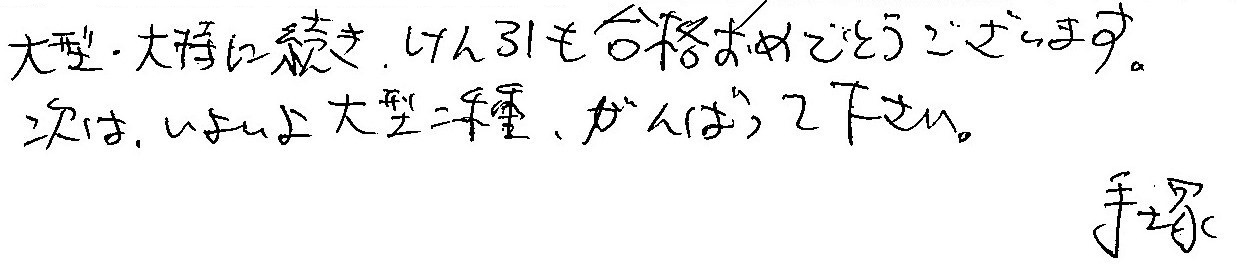 大型・大特に続き、けん引も合格おめでとうございます。
次は、いよいよ大型二種、がんばって下さい。
手塚